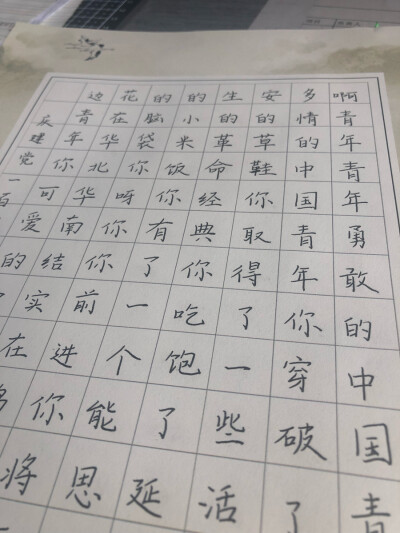 啊青年青年勇敢的中国青
多情的中国青年你穿破了
安的草鞋你取得了一些活
生的革命经典你吃饱了延
的小米饭你有了一个能思
的脑袋你呀你前进你将
花在华北华南结实在
边青年你可爱的
庆建党一百